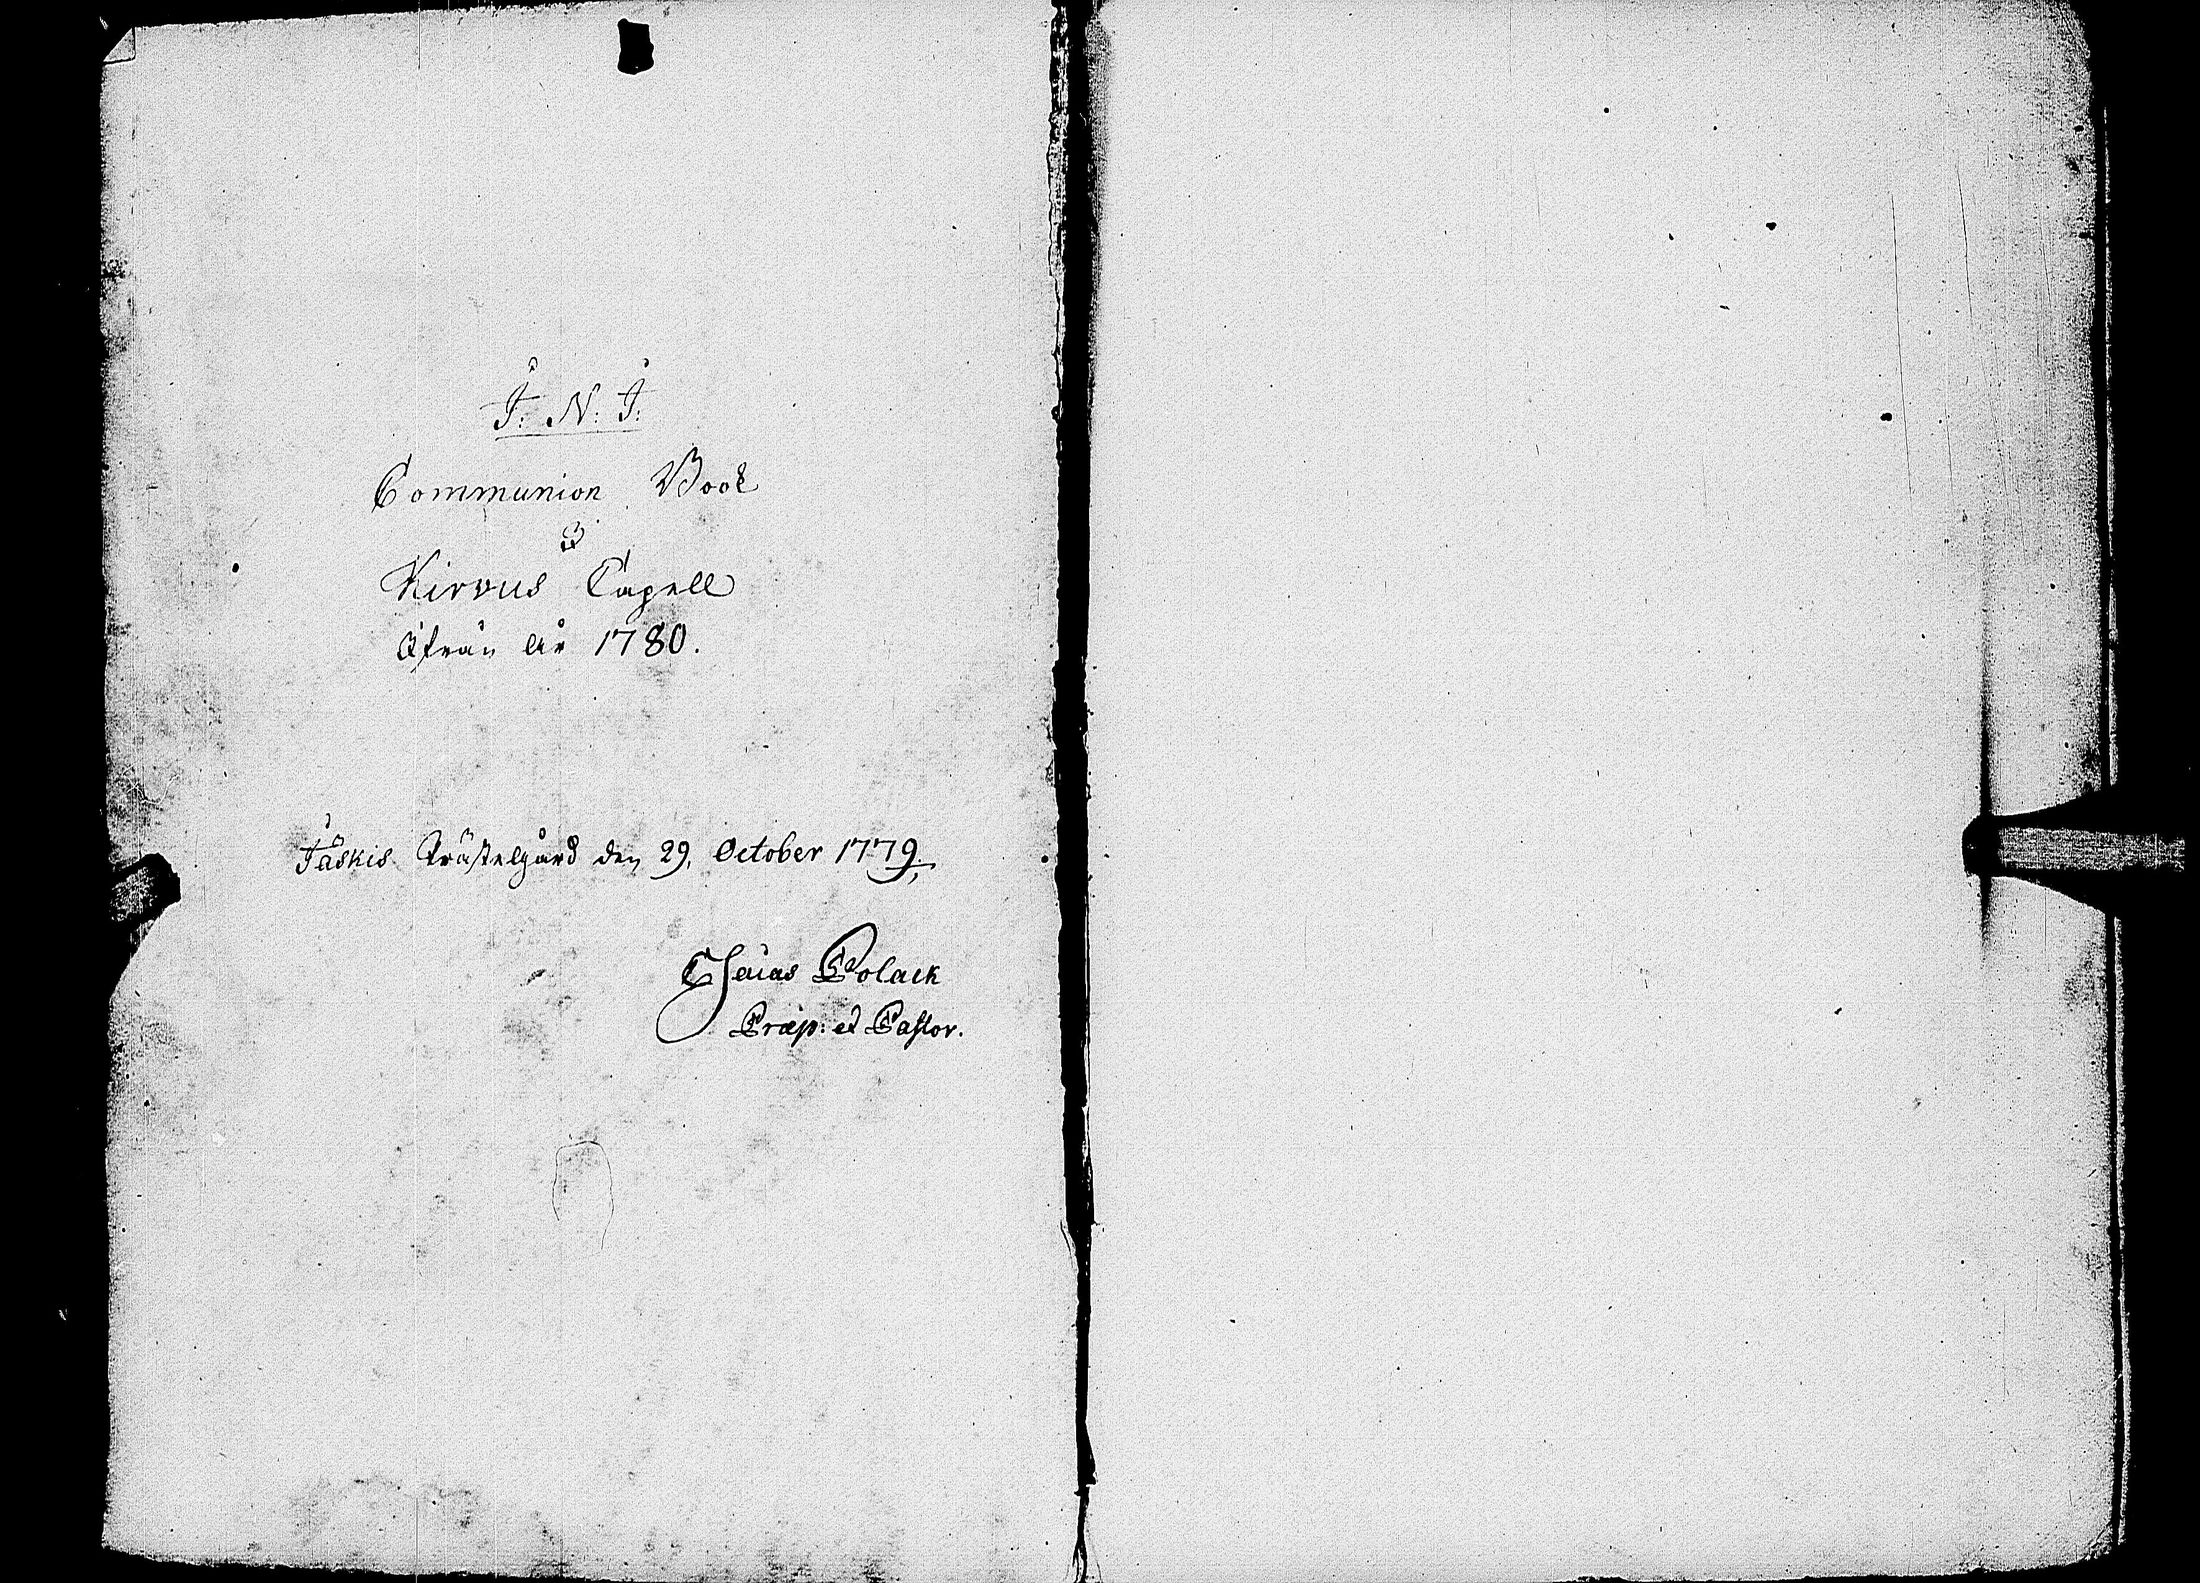 J: N: J:
Communion Book
i
Kirvus Capell
Ifrån år 1780.
Jäskis Prästegård den 29. October 1779.
Esaias Polack
Præp: et Pastor.